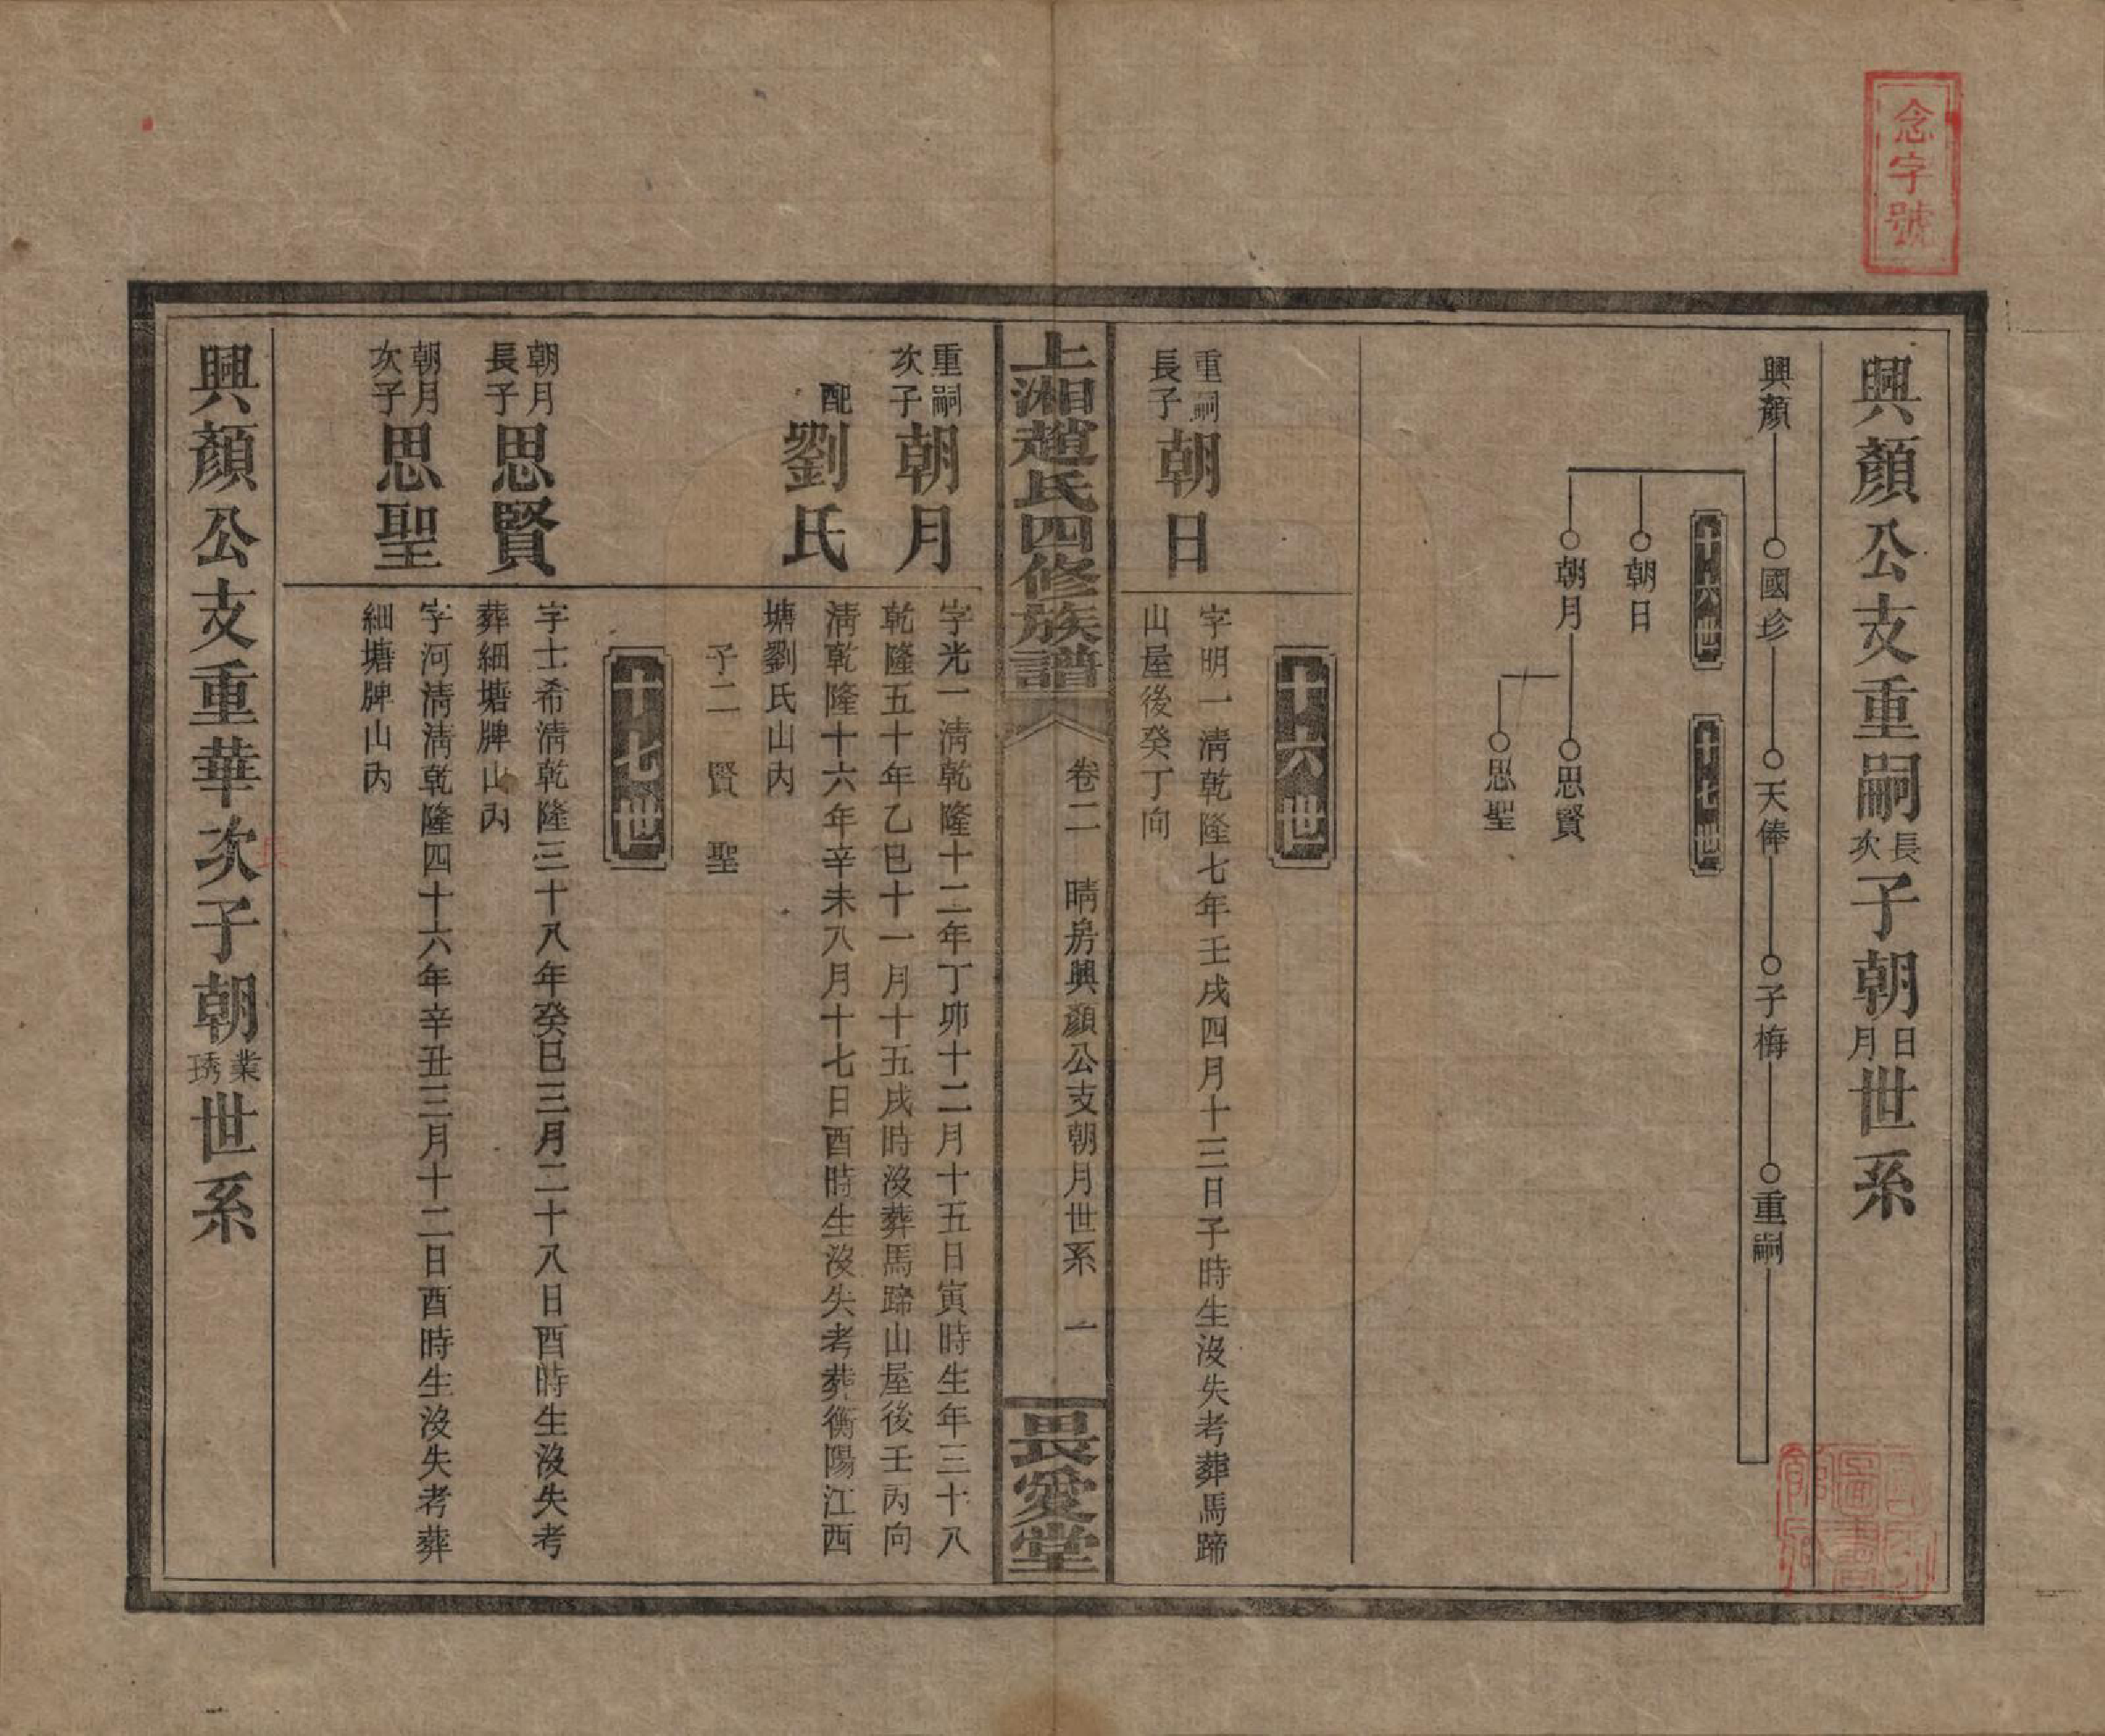 念字號
興顏公支重嗣長次子朝日月世系
興顏 國珍 天俸 子梅 重嗣
十六世 十七世
朝日
朝月 思賢
思聖
十六世
重嗣長子朝日 字明一清乾隆七年壬戌四月十三日子時生沒失考葬馬蹄
山屋後癸丁向
上湘趙氏四修族譜 卷二 晴房興顏公支朝月世系 一 畏愛堂
重嗣次子朝月 字光一清乾隆十二年丁卯十二月十五日寅時生年三十八
乾隆五十年乙巳十一月十五戌時沒葬馬蹄山屋後壬丙向
配劉氏 清乾隆十六年辛未八月十七日酉時生沒失考葬衡陽江西
塘劉氏山內
子二 賢 聖
十七世
朝月長子思賢 字士希清乾隆三十八年癸巳三月二十八日酉時生沒失考
葬細塘牌山內
朝月次子思聖 字河清清乾隆四十六年辛丑三月十二日酉時生沒失考葬
細塘牌山內
興顏公支重華次子朝業琇世系